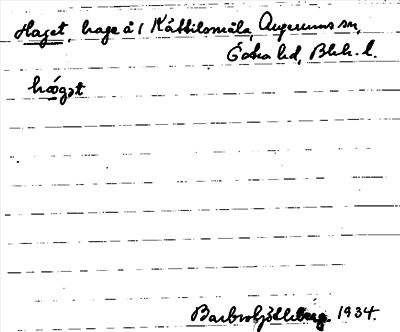 Haget, hage å 1 Kättilsmåla, Augerums sn,
Östra hd, Blek. l.
hɑ́gət
Barbro Söderberg 1934.